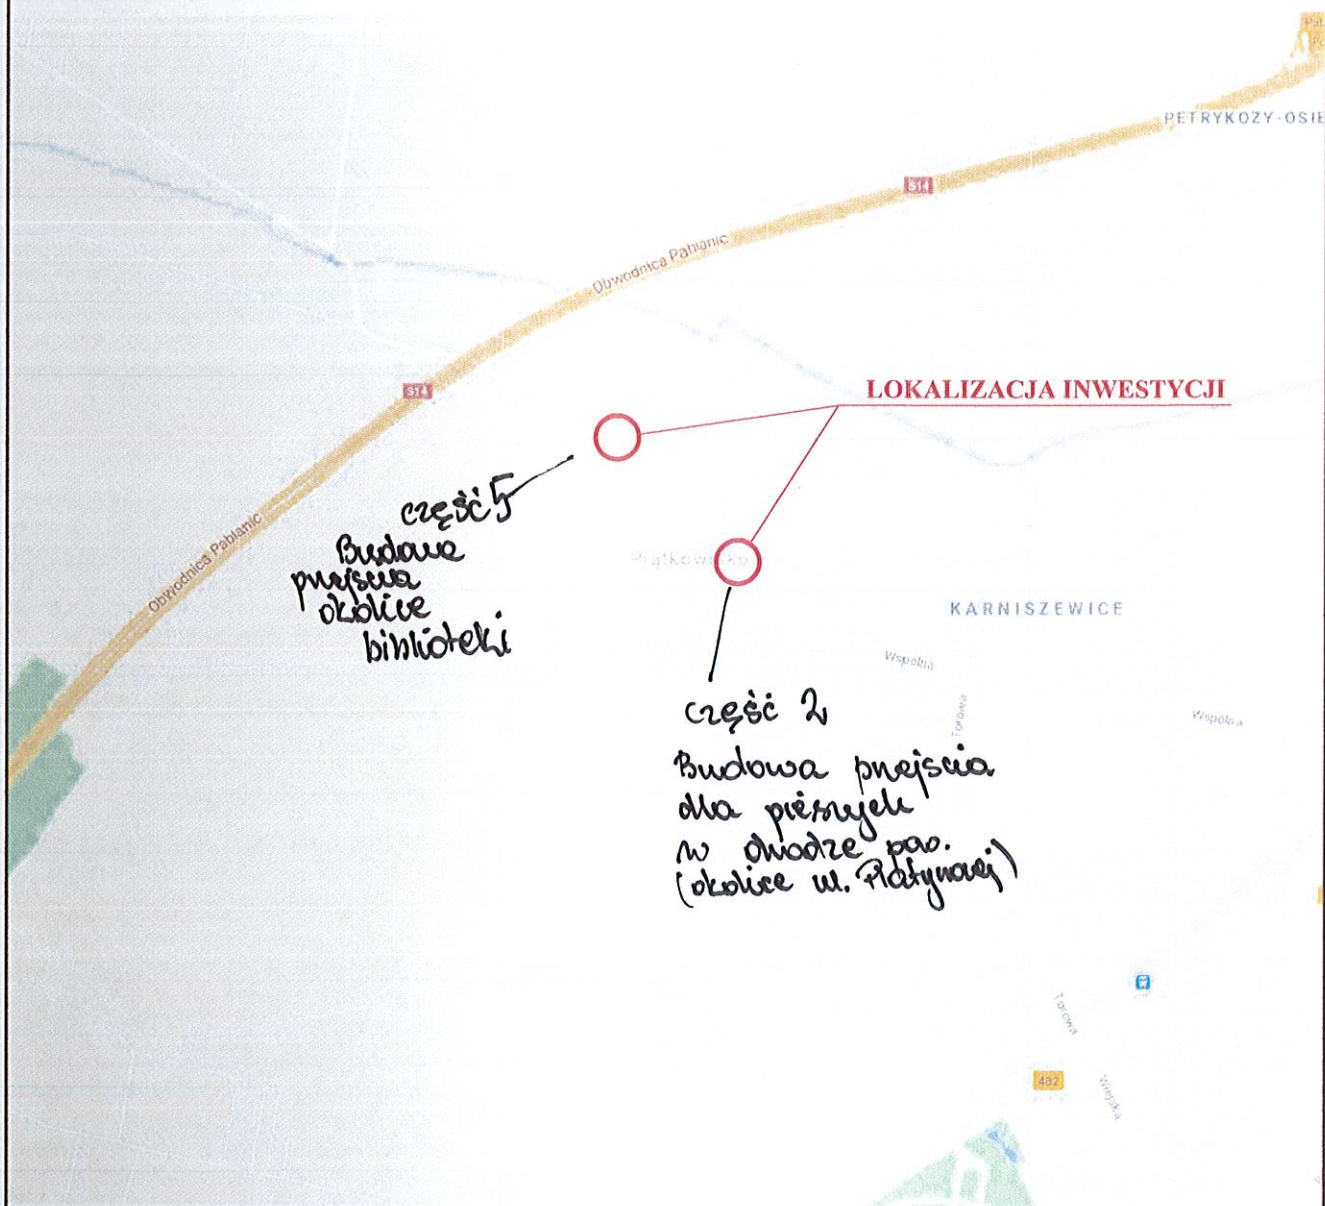 PETRYKOZY-OSIE
S14
Obwodnica Pabianic
LOKALIZACJA INWESTYCJI
S14
część 5
Budowa
przejścia
okolice
biblioteki
Obwodnica Pabianic
Piątkowisko
KARNISZEWICE
Wspólna
Torowa
Wspólna
część 2
Budowa przejścia
dla pieszych
w drodze pow.
(okolice ul. Platynowej)
Torowa
482
Wiejska